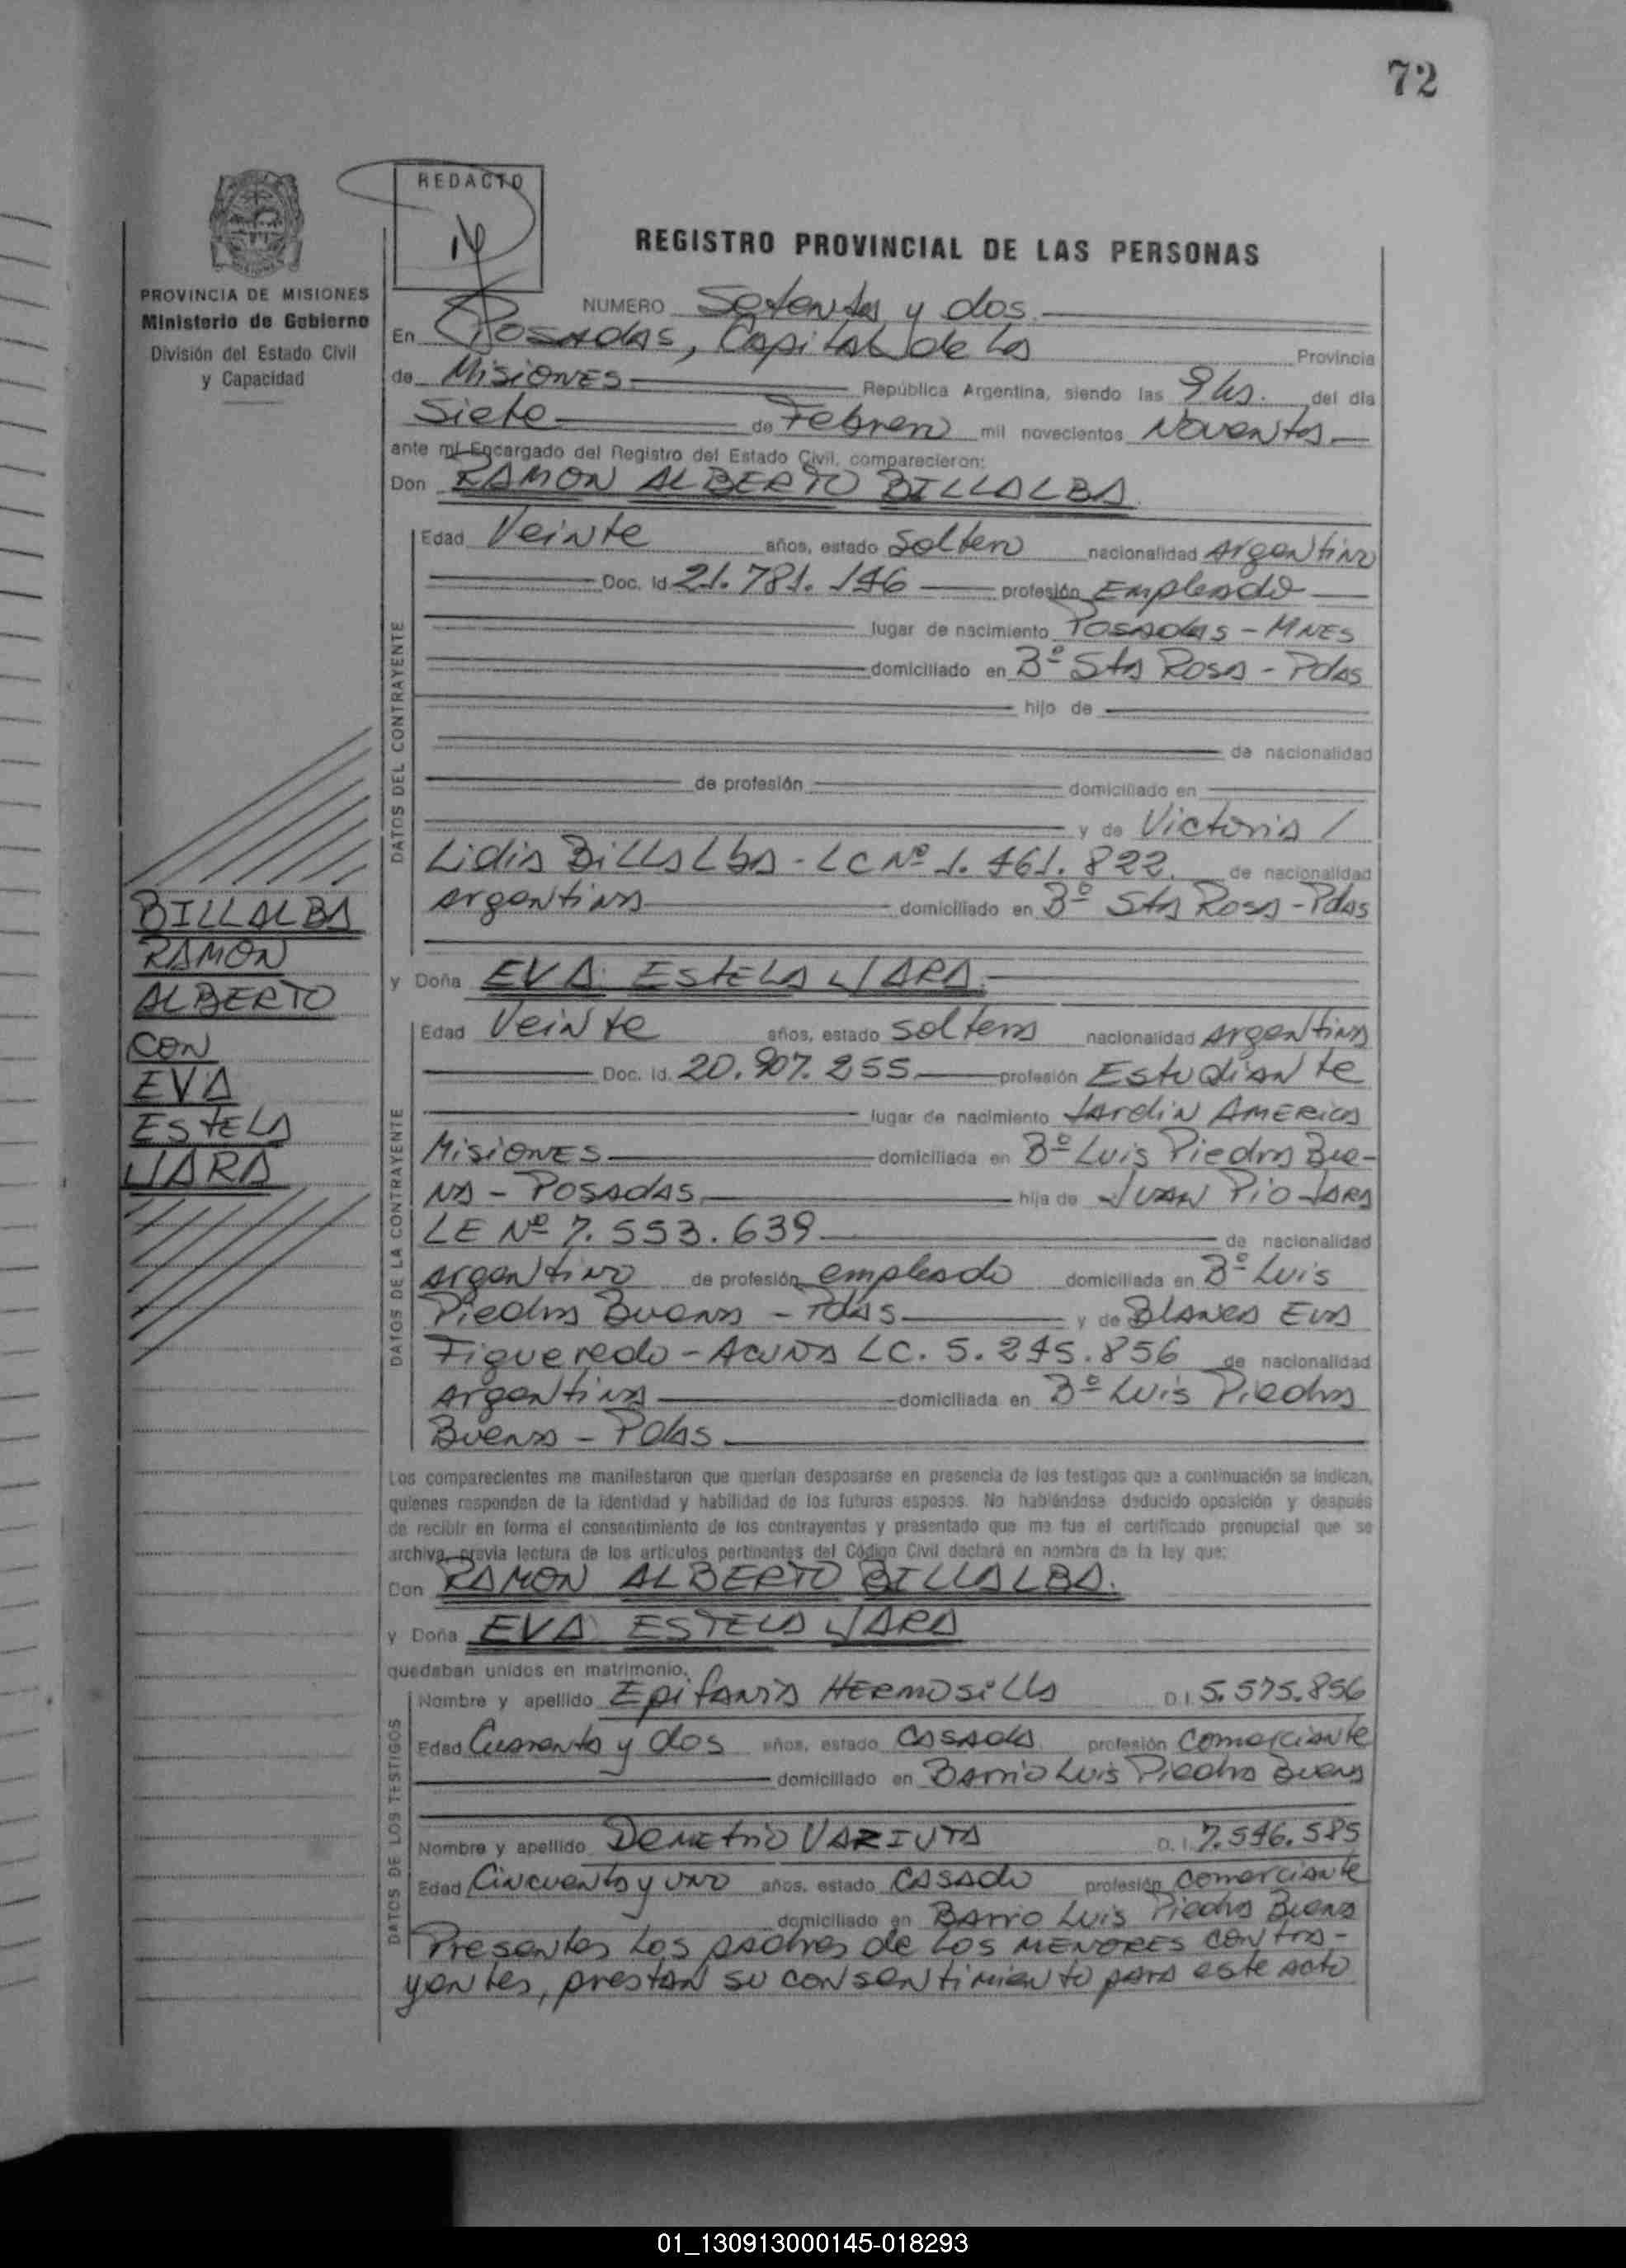 72
REDACTO
REGISTRO PROVINCIAL DE LAS PERSONAS
PROVINCIA DE MISIONES
Ministerio de Gobierno
División del Estado Civil
y Capacidad
NUMERO Setenta y dos
En Posadas, Capital de la Provincia
de Misiones República Argentina, siendo las 9 hs. del día
Siete de Febrero mil novecientos Noventa
ante mí Encargado del Registro del Estado Civil, comparecieron:
Don RAMON ALBERTO BILLALBA
DATOS DEL CONTRAYENTE
Edad Veinte años, estado Soltero nacionalidad Argentino
Doc. Id 21.781.146 profesión Empleado
lugar de nacimiento Posadas - MNES
domiciliado en Bº Sta Rosa - Pdas
hijo de
de nacionalidad
de profesión domiciliado en
y de Victoria /
Lidia Billalba - LC Nº 1.461.822. de nacionalidad
argentina domiciliado en Bº Sta Rosa - Pdas
BILLALBA
RAMON
ALBERTO
CON
EVA
ESTELA
JARA
y Doña EVA ESTELA JARA
DATOS DE LA CONTRAYENTE
Edad Veinte años, estado Soltera nacionalidad Argentina
Doc. Id. 20.907.255 profesión Estudiante
lugar de nacimiento Jardin America
Misiones domiciliada en Bº Luis Piedra Bue-
na - Posadas hija de Juan Pio Jara
LE Nº 7.553.639 de nacionalidad
argentino de profesión empleado domiciliada en Bº Luis
Piedra Buena - Pdas y de Blanca Eva
Figueredo - Acuña LC. 5.245.856 de nacionalidad
Argentina domiciliada en Bº Luis Piedra
Buena - Pdas
Los comparecientes me manifestaron que querían desposarse en presencia de los testigos que a continuación se indican,
quienes responden de la identidad y habilidad de los futuros esposos. No habiéndose deducido oposición y después
de recibir en forma el consentimiento de los contrayentes y presentado que me fue el certificado prenupcial que se
archiva, previa lectura de los artículos pertinentes del Código Civil declaré en nombre de la ley que:
Don RAMON ALBERTO BILLALBA.
y Doña EVA ESTELA JARA
quedaban unidos en matrimonio.
DATOS DE LOS TESTIGOS
Nombre y apellido Epifania Hermosilla D.I. 5.575.856
Edad Cuarenta y dos años, estado Casada profesión Comerciante
domiciliado en Barrio Luis Piedra Buena
Nombre y apellido Demetrio VARIUTA D.I. 7.546.585
Edad Cincuenta y uno años, estado Casado profesión Comerciante
domiciliado en Barrio Luis Piedra Buena
Presentes los padres de los menores contra-
yentes, prestan su consentimiento para este acto
01_130913000145-018293